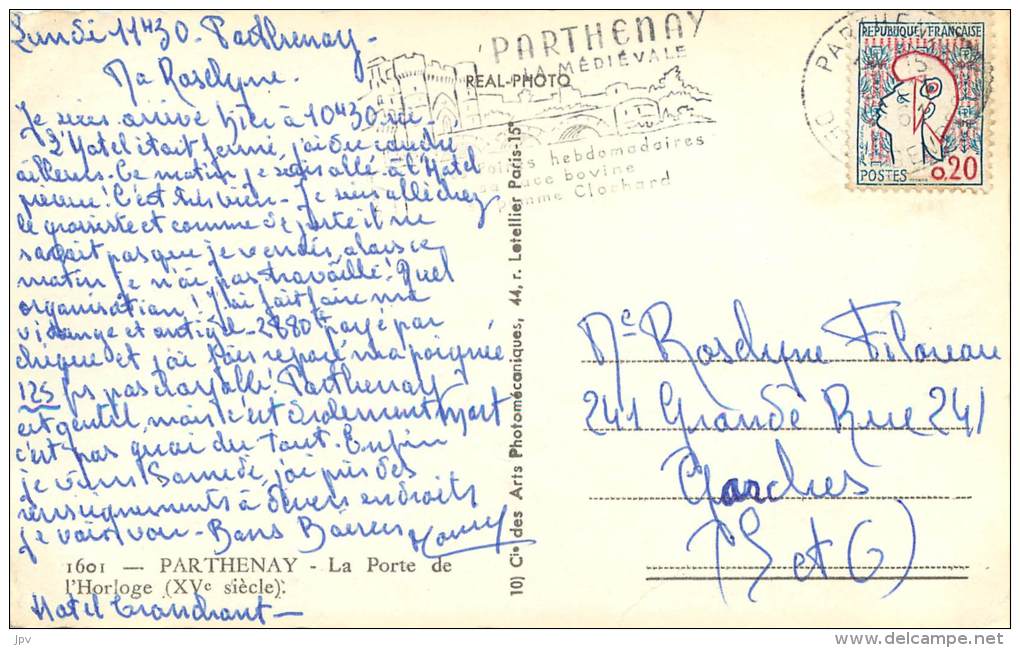 Lundi 11H30 - Parthenay -
Ma Roselyne.
Je suis arrivé hier à 10H30
L'Hotel était fermé, j'ai du coucher
ailleurs. Ce matin je suis allé à l'Hotel
prévenu! C'est très bien - Je suis allé chez
le grossiste et comme de juste il ne
savait pas que je vendis, alors ce
matin je n'ai pas travaillé! Quel
organisation! J'ai fait faire ma
vidange et antigel - 2880f payé par
chèque et j'ai fais réparé ma poignée
125 frs pas
Parthenay
est gentil, mais c'est drolement mort
c'est pas quoi du tout. Enfin
je viens Samedi, j'ai pris des
renseignements à divers endroits
je vais voir - Bons Baisers
1601 — PARTHENAY - La Porte de
l'Horloge (XVe siècle).
Hotel Tranchant -
REAL-PHOTO
10) Cie des Arts Photomécaniques, 44, r. Letellier Paris-15e
PARTHENAY
LA MÉDIÉVALE
Foires hebdomadaires
sa race bovine
pomme Clochard
PARTHENAY
REPUBLIQUE FRANÇAISE
POSTES
0,20
Me Roselyne Filoreau
241 Grande Rue 241
Garches
(S et O)
jpv
delcampe.net